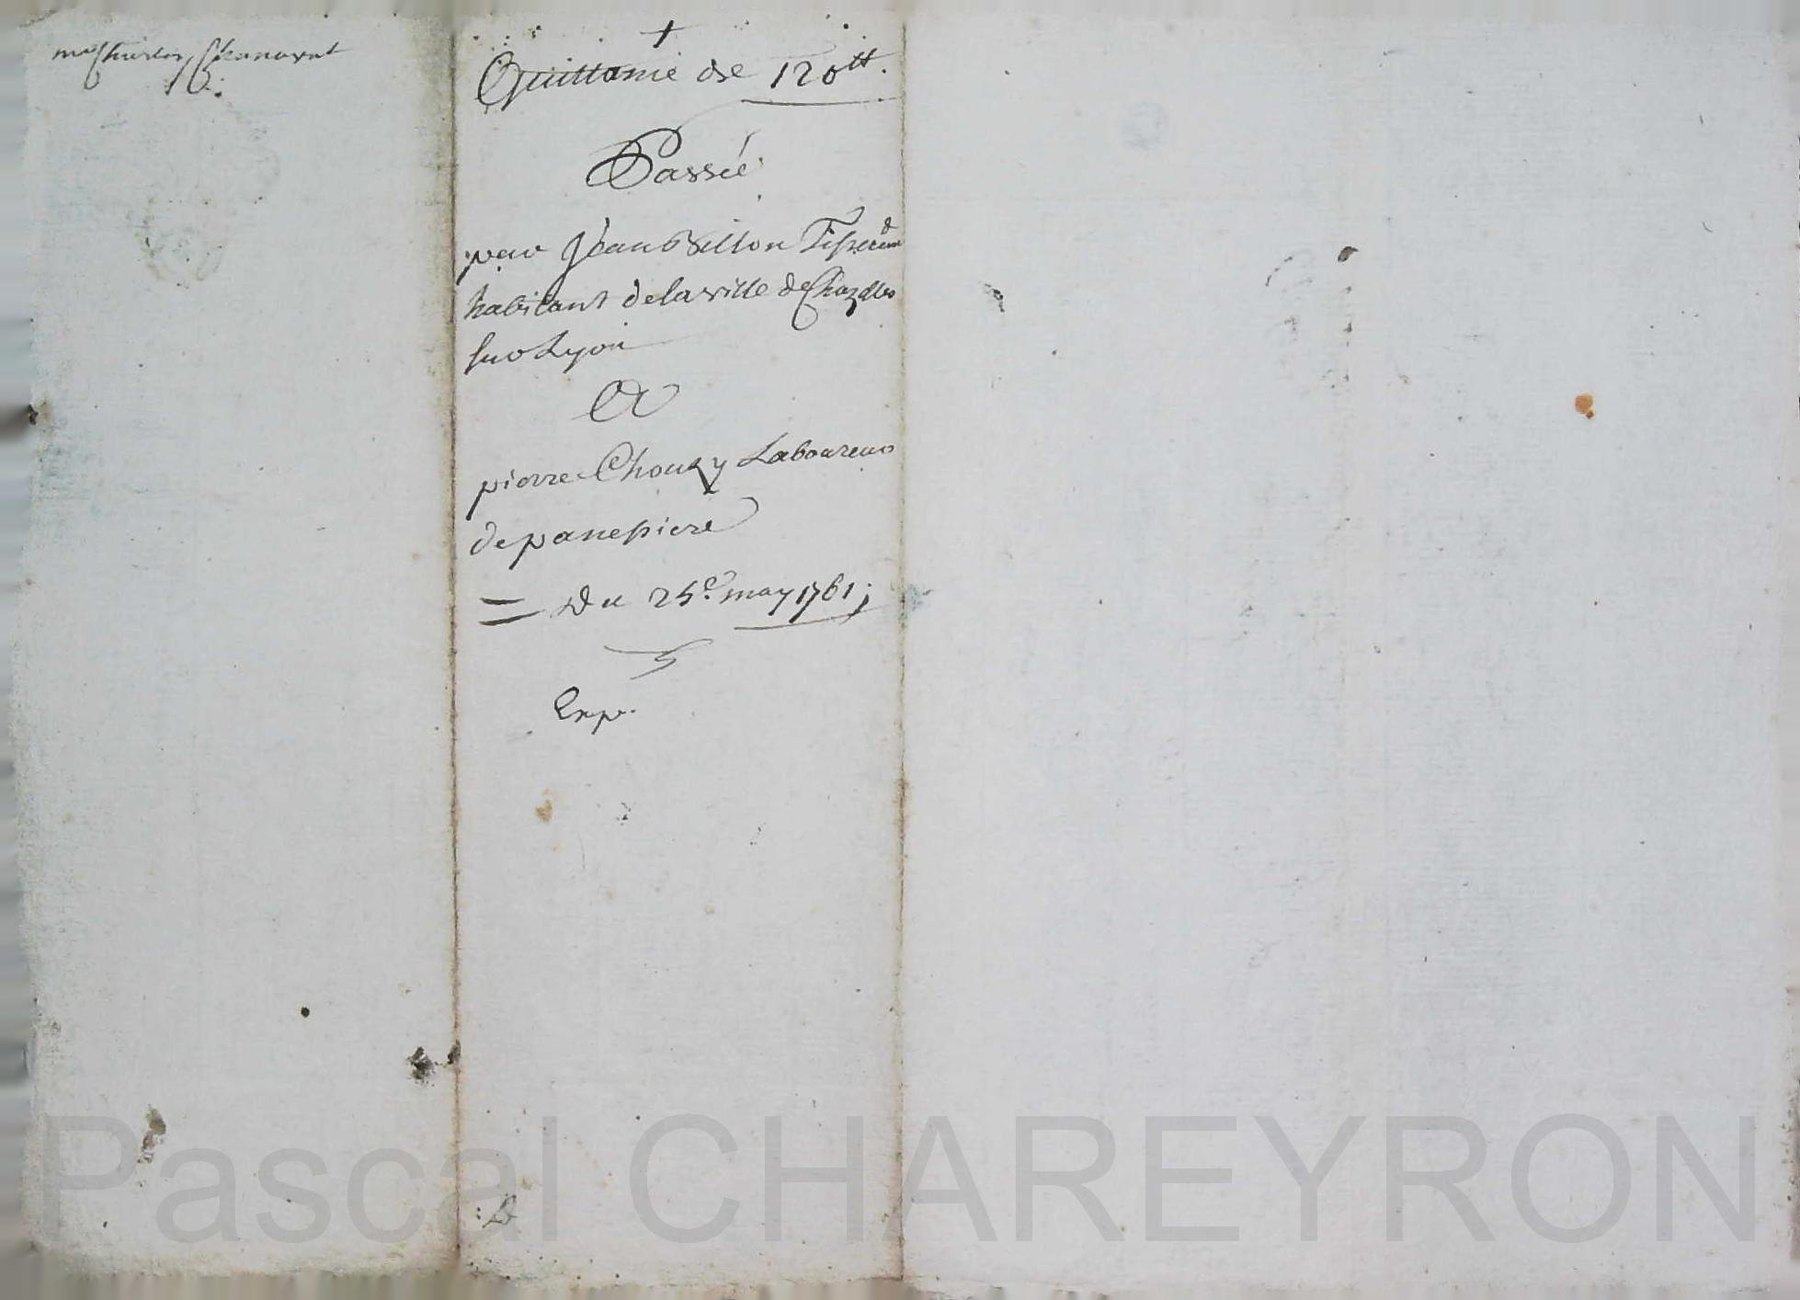 me Charles Chanavat
+
Quittanie de 120tt.
Passée
par Jean Villon Tisserand
habitant de la ville de Chazelles
sur Lyon
A
pierre Chouzy Laboureur
de panessiere
= Du 25e. may 1761;
Exp.
Pascal CHAREYRON